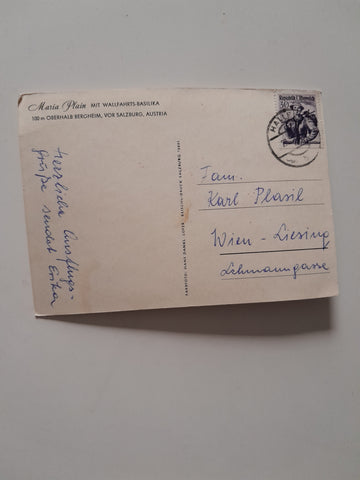 Maria Plain MIT WALLFAHRTS-BASILIKA
100 m OBERHALB BERGHEIM, VOR SALZBURG, AUSTRIA
Herzliche Ausflugs-
grüße sendet Erika
Republik Österreich
Fam.
Karl Plasil
Wien - Liesing
Lehmanngasse